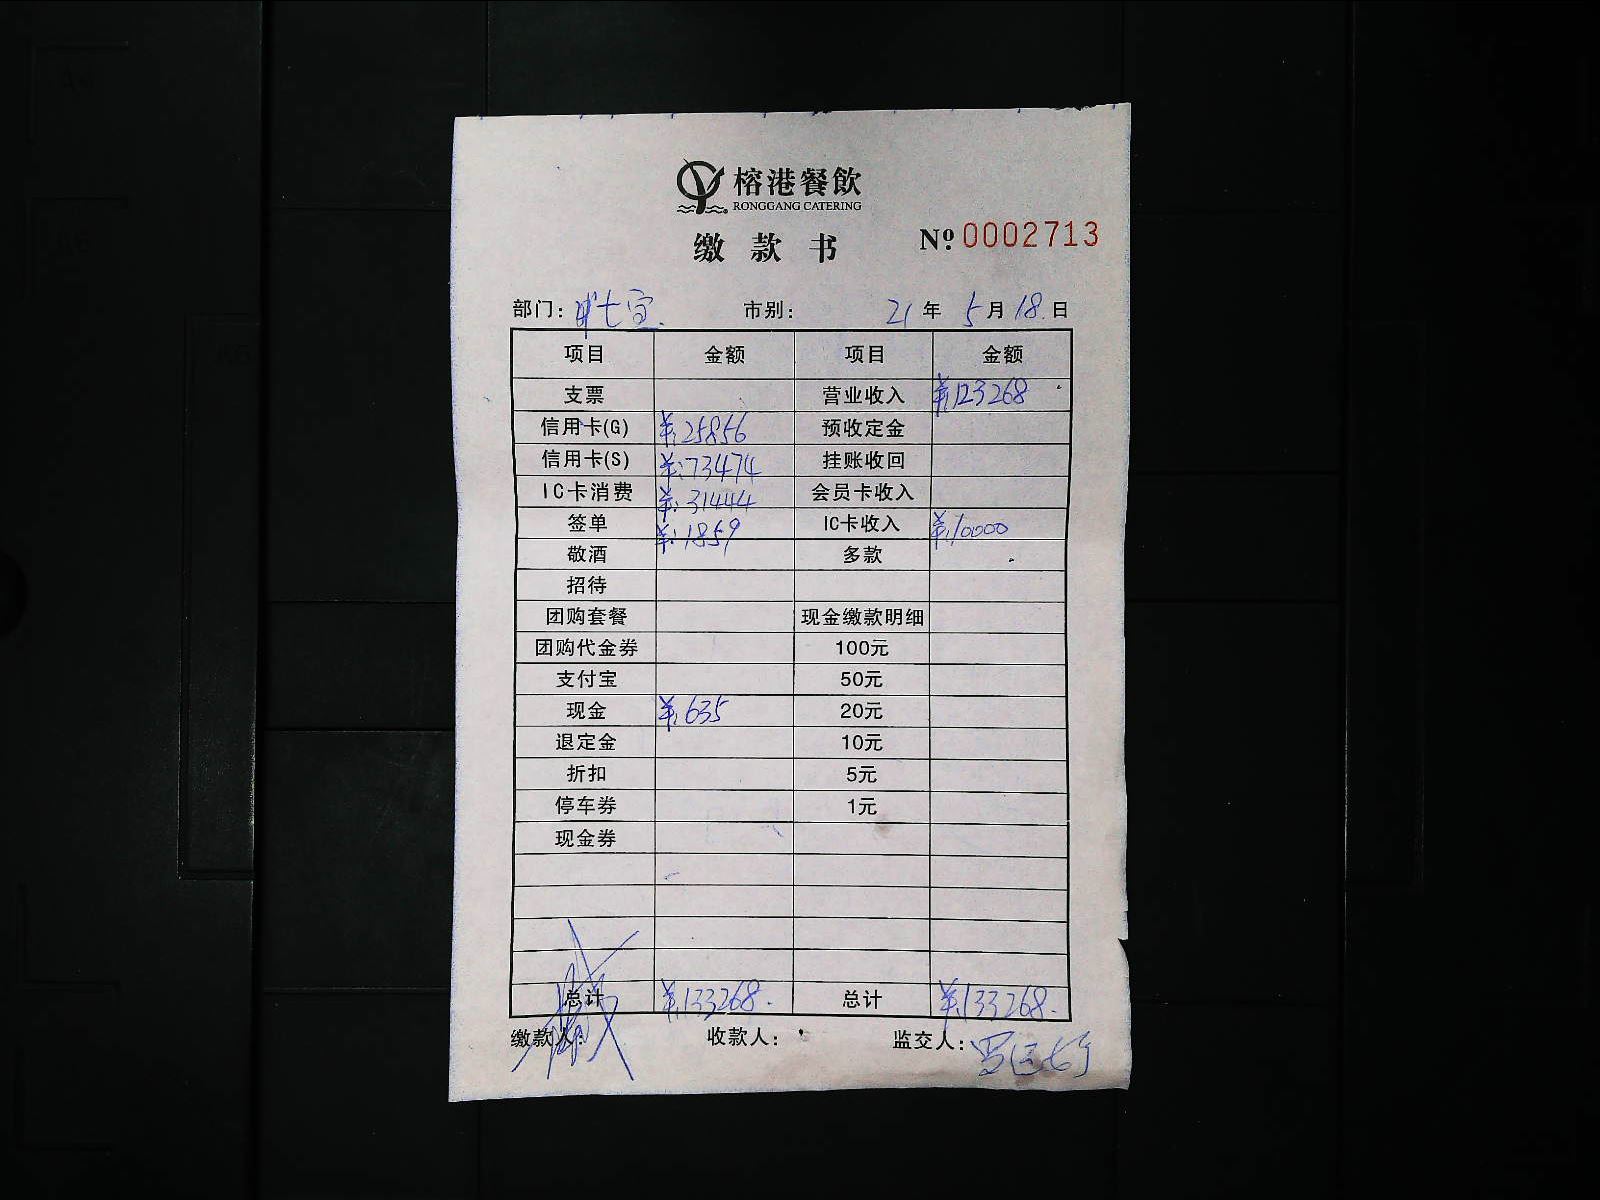 榕港餐飲
RONGGANG CATERING
缴款书 № 0002713
部门: 市别: 21年 5月 18日
项目 金额 项目 金额
支票 营业收入 ¥:123268
信用卡(G) ¥:25856 预收定金
信用卡(S) ¥:73474 挂账收回
IC卡消费 ¥:31444 会员卡收入
签单 ¥:1859 IC卡收入 ¥:10000
敬酒 多款
招待
团购套餐 现金缴款明细
团购代金券 100元
支付宝 50元
现金 ¥:635 20元
退定金 10元
折扣 5元
停车券 1元
现金券
总计 ¥:133268. 总计 ¥:133268.
缴款人: 收款人: 监交人: